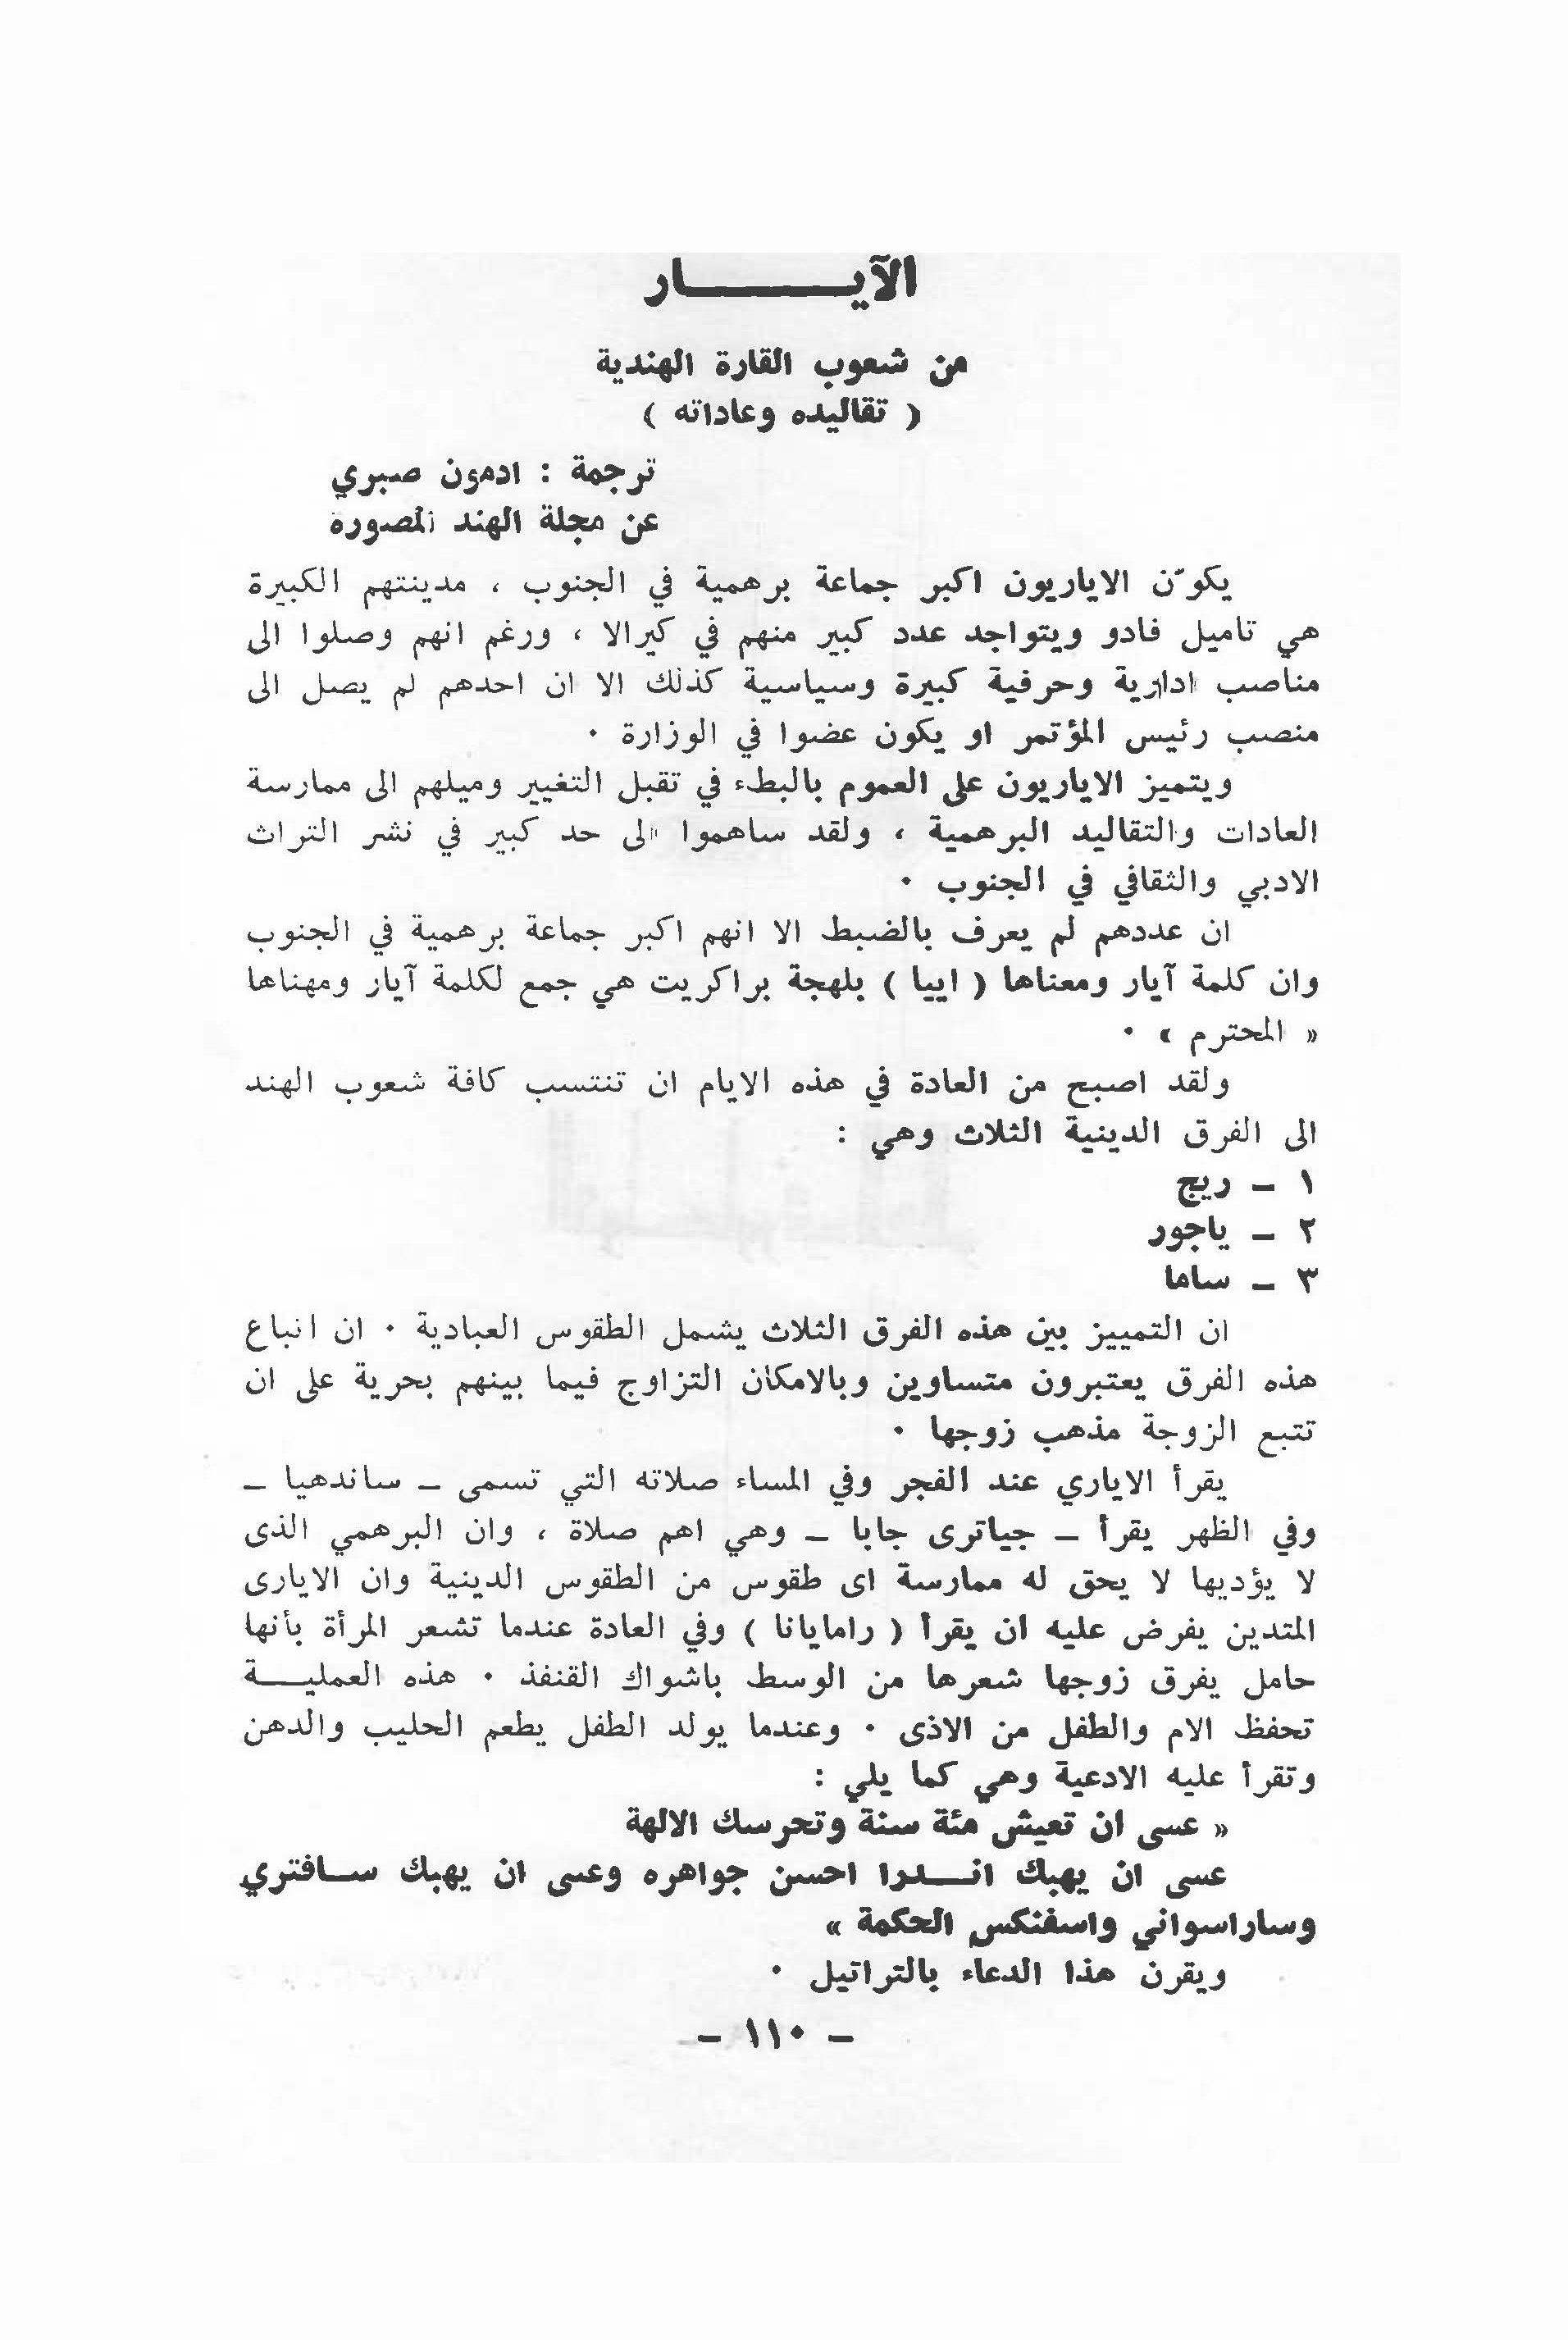 الآيـــــــار
من شعوب القارة الهندية
( تقاليده وعاداته )
ترجمة : ادمون صبري
عن مجلة الهند المصورة
يكوّن الاياريون اكبر جماعة برهمية في الجنوب ، مدينتهم الكبيرة
هي تاميل فادو ويتواجد عدد كبير منهم في كيرالا ، ورغم انهم وصلوا الى
مناصب ادارية وحرفية كبيرة وسياسية كذلك الا ان احدهم لم يصل الى
منصب رئيس المؤتمر او يكون عضوا في الوزارة ٠
ويتميز الاياريون على العموم بالبطء في تقبل التغيير وميلهم الى ممارسة
العادات والتقاليد البرهمية ، ولقد ساهموا الى حد كبير في نشر التراث
الادبي والثقافي في الجنوب ٠
ان عددهم لم يعرف بالضبط الا انهم اكبر جماعة برهمية في الجنوب
وان كلمة آيار ومعناها ( اييا ) بلهجة براكريت هي جمع لكلمة آيار ومهناها
« المحترم » ٠
ولقد اصبح من العادة في هذه الايام ان تنتسب كافة شعوب الهند
الى الفرق الدينية الثلاث وهي :
١ ـ ريج
٢ ـ ياجور
٣ ـ ساما
ان التمييز بين هذه الفرق الثلاث يشمل الطقوس العبادية ٠ ان اتباع
هذه الفرق يعتبرون متساوين وبالامكان التزاوج فيما بينهم بحرية على ان
تتبع الزوجة مذهب زوجها ٠
يقرأ الاياري عند الفجر وفي المساء صلاته التي تسمى ـ ساندهيا ـ
وفي الظهر يقرأ ـ جياترى جابا ـ وهي اهم صلاة ، وان البرهمي الذى
لا يؤديها لا يحق له ممارسة اى طقوس من الطقوس الدينية وان الايارى
المتدين يفرض عليه ان يقرأ ( رامايانا ) وفي العادة عندما تشعر المرأة بأنها
حامل يفرق زوجها شعرها من الوسط باشواك القنفذ ٠ هذه العمليـــة
تحفظ الام والطفل من الاذى ٠ وعندما يولد الطفل يطعم الحليب والدهن
وتقرأ عليه الادعية وهي كما يلي :
« عسى ان تعيش مئة سنة وتحرسك الالهة
عسى ان يهبك انـــدرا احسن جواهره وعسى ان يهبك ســافتري
وساراسواني واسفنكس الحكمة »
ويقرن هذا الدعاء بالتراتيل ٠
ـ ١١٠ ـ